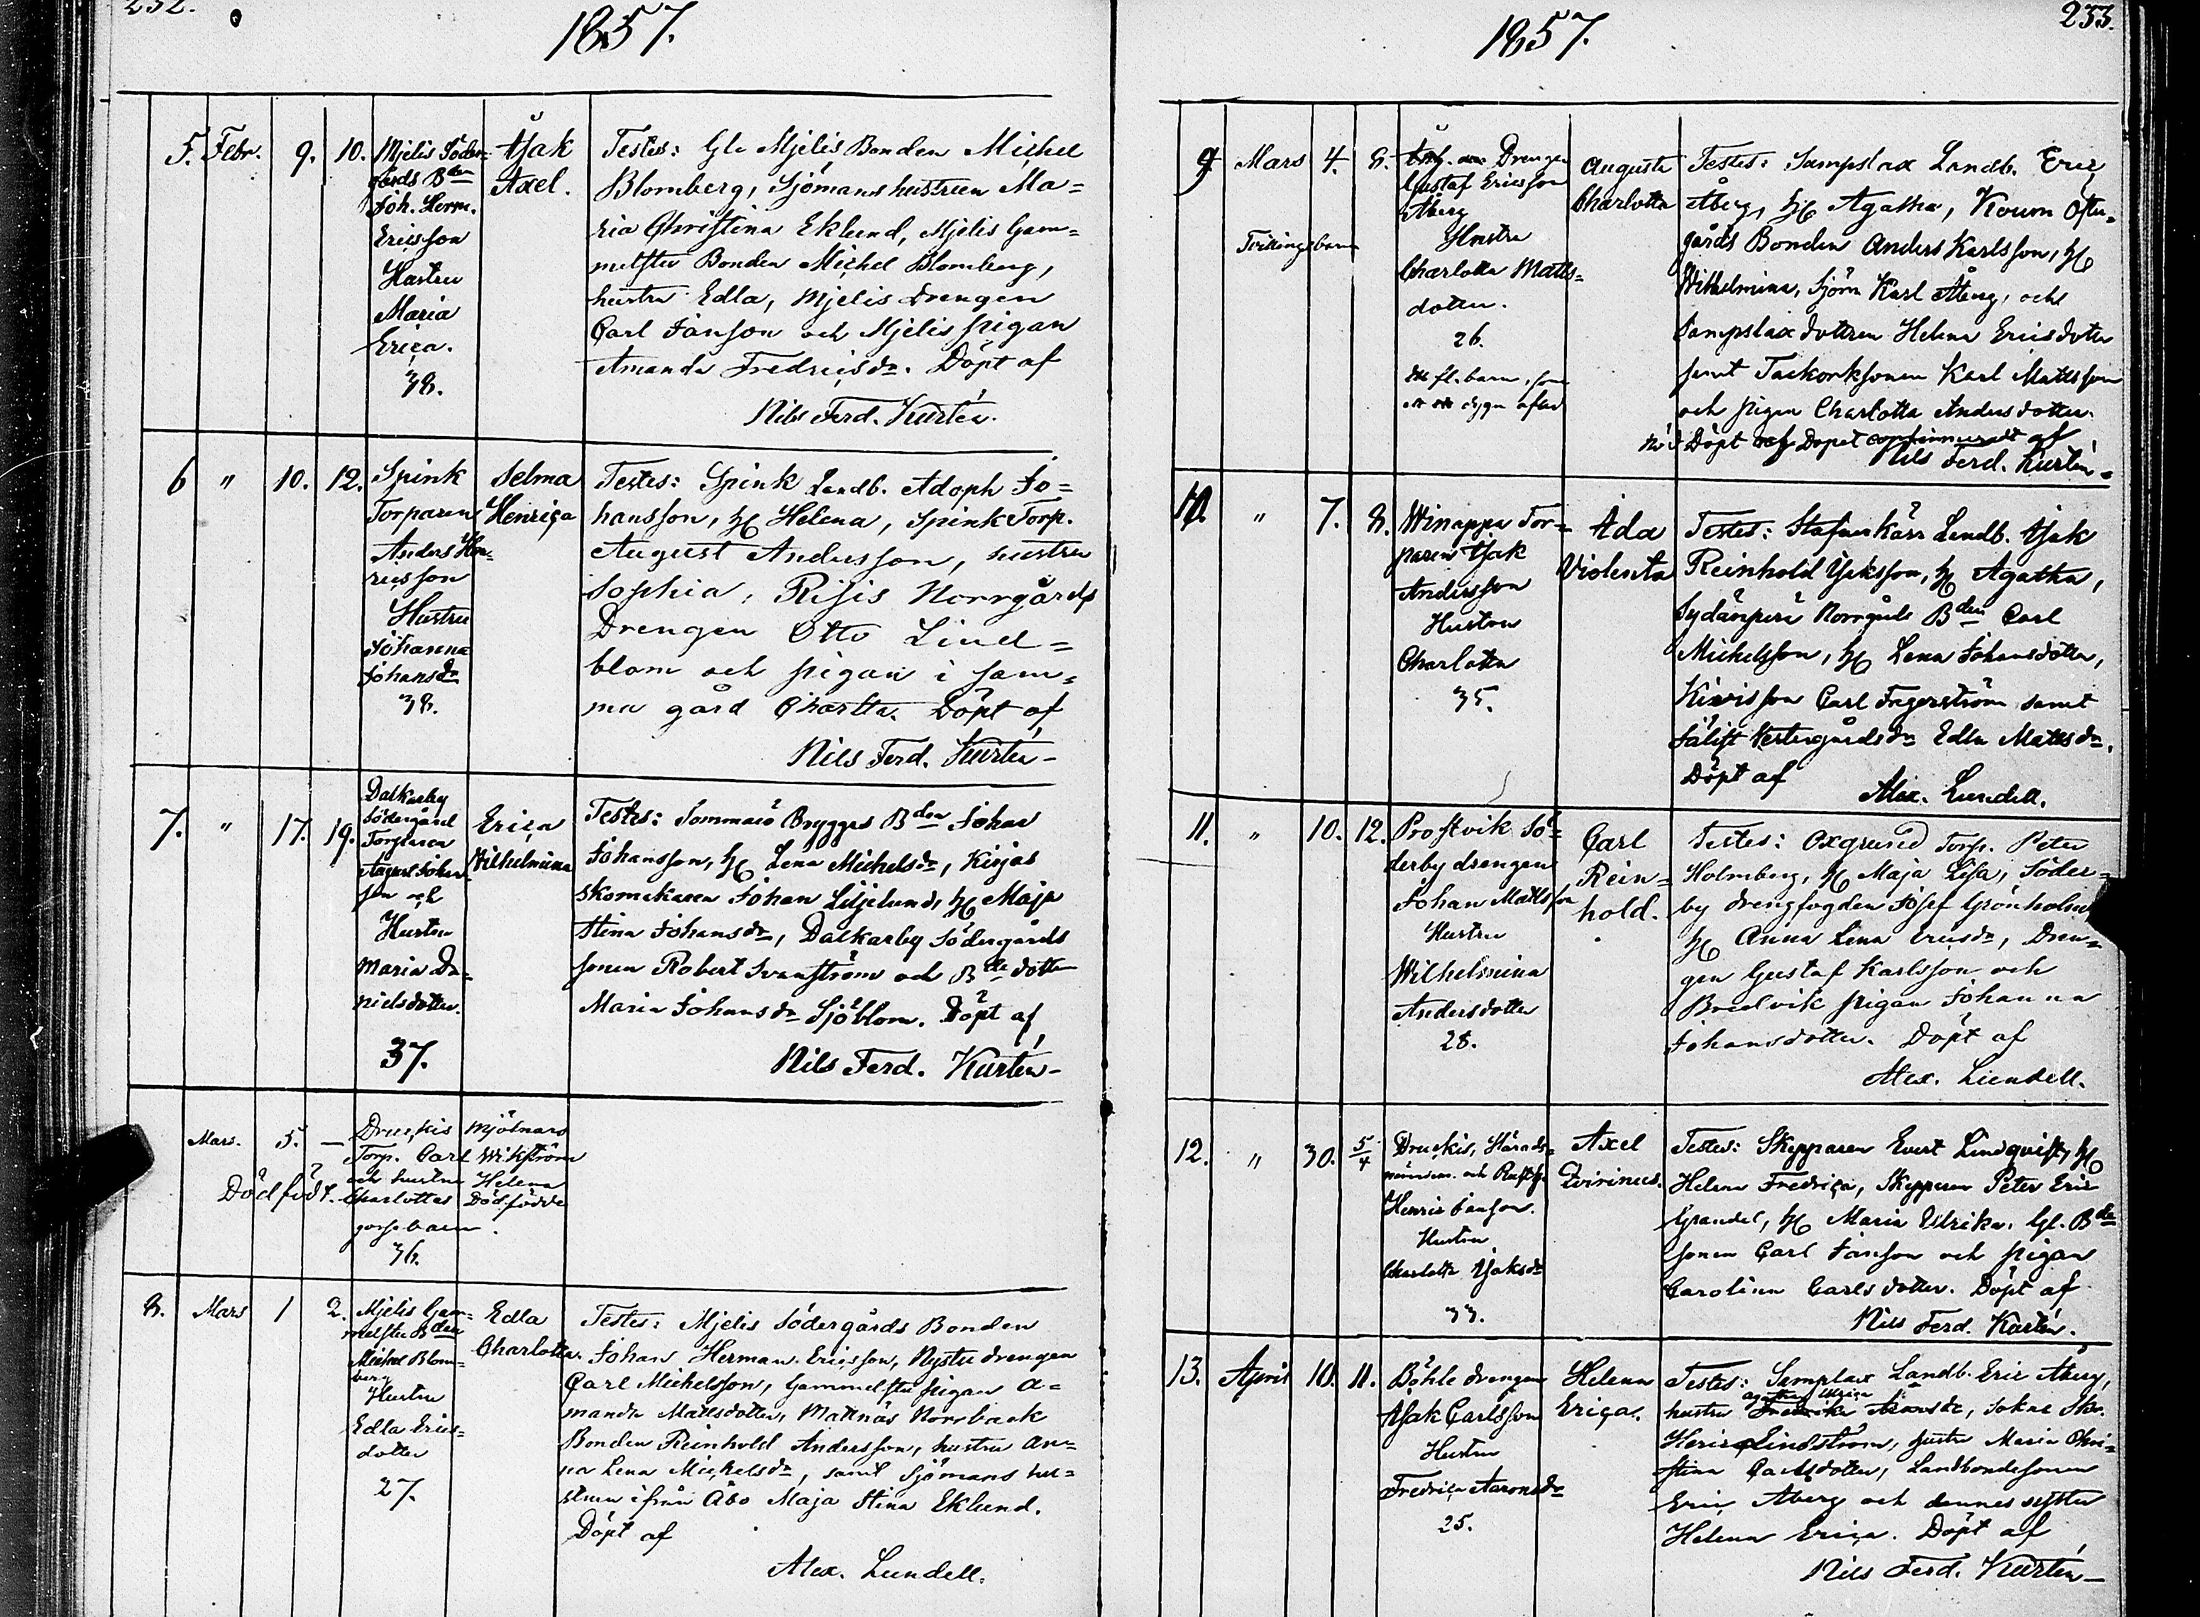 232.
1857.
5. Febr. 9. 10.
Mjelis Söder-
gårds Bden
Joh. Herm.
Ericsson
Hustru
Maria
Erica.
38.
Isak
Axel.
Testes: Gle Mjelis Bonden Michel
Blomberg, Sjömanshustrun Ma=
ria Christina Eklund, Mjelis Gam=
melstu Bonden Michel Blomberg,
hustru Edla, Mjelis Drengen
Carl Janson och Mjelis pigan
Amanda Fredricsdr. Döpt af
Nils Ferd. Kurtén.
6 " 10. 12.
Spink
Torparen
Anders Hen=
ricsson
Hustru
Johanna
Johansdr
38.
Selma
Henrica
Testes: Spink Landb. Adoph Jo=
hansson, H Helena, Spink Torp.
August Andersson, hustru
Sophia, Risis Norrgårds
Drengen Otto Lind=
blom och pigan i sam=
ma gård Charltta. Döpt af
Nils Ferd. Kurtén-
7. " 17. 19.
Dalkarby
Södergård
Torparen
August Johans-
son och
Hustru
Maria Da=
nielsdotter.
37.
Erica
Wilhelmina
Testes: Sommarö Brygges Bden Johan
Johansson, H Lena Michelsdr, Kirjais
skomakaren Johan Liljelund, H Maja
Stina Johansdr, Dalkarby Södergårds
sonen Robert Svanström och Bde dotter
Maria Johansdr Sjöblom. Döpt af
Nils Ferd. Kurtén-
Mars. 5. –
Dödfödt.
Druckis Mjölnars
Torp. Carl Wikström
och hustru Helena
Charlottas Dödfödde
gossebarn.
36.
8. Mars 1 2.
Mjelis Gam-
melstu Bden
Michel Blom-
berg
Hustru
Edla Erics-
dotter
27.
Edla
Charlotta.
Testes: Mjelis Södergårds Bonden
Johan Herman Ericsson, Nystu drengen
Carl Michelsson, Gammelstu pigan A=
manda Mattsdotter, Mattnäs Norrback
Bonden Reinhold Andersson, hustru An=
na Lena Michelsdr, samt Sjömans hu=
strun ifrån Åbo Maja Stina Eklund.
Döpt af
Alex. Lundell.
233.
1857.
9 Mars 4. 8.
Tvillingsbarn
Drengen
Gustaf Ericsson
Åberg
Hustru
Charlotta Matts=
dotter.
26.
fl. barn, som
dygn afled
Augusta
Charlotta
Testes: Sampslax Landb. Eric
Åberg, H Agatha, Koum Öster=
gårds Bonden Anders Karlsson, H
Wilhelmina, Sjöm Karl Åberg, och
Sampslax dottren Helena Ericsdotter
samt Taskorksonen Karl Mattsson
och pigan Charlotta Andersdotter.
Nöd Döpt och Dopet confirmeradt af
Nils Ferd. Kurtén-
10. " 7. 8.
Winappa Tor=
paren Isak
Andersson
Hustru
Charlotta
35.
Ada
Violenta
Testes: Stafnarkärr Landb. Isak
Reinhold Isaksson, H Agatha,
Sydänperä Norrgårds Bden Carl
Michelsson, H Lena Johansdotter,
Kivisson Carl Fagerström samt
Jälist Westergårdsdr Edla Mattsdr.
Döpt af
Alex. Lundell.
11. " 10. 12.
Prostvik Sö=
derby drengen
Johan Mattsson
Hustru
Wilhelmina
Andersdotter
28.
Carl
Rein=
hold.
Testes: Oxgrund Torp. Peter
Holmberg, H Maja Lisa, Söder=
by drengfogden Josef Grönholm
H Anna Lena Ericsdr, Dren=
gen Gustaf Karlsson och
Bredvik pigan Johanna
Johansdotter. Döpt af
Alex. Lundell.
12. " 30. 5/4
Druckis, Härads=
nämdem. och
Henric Janson.
Hustru
Charlotta Isaksdr
33.
Axel
Qvirinus.
Testes: Skepparen Evert Lindqvist, H
Helena Fredrica, Skepparen Peter Eric
Grandel, H Maria Ulrika, Gl. Bde
sonen Carl Janson och pigan
Carolina Carlsdotter. Döpt af
Nils Ferd. Kurtén.
13. April 10. 11.
Böhle drengen
Isak Carlsson
Hustru
Fredrica Aaronsdr
25.
Helena
Erica.
Testes: Samplax Landb. Eric Åberg,
hustru Fredrika Aronsdr, Sokne Skr.
Henric Lindström, hustru Maria Chri=
stina Carlsdotter, Landbondesonen
Eric Åberg och dennes syster
Helena Erica. Döpt af
Nils Ferd. Kurtén-